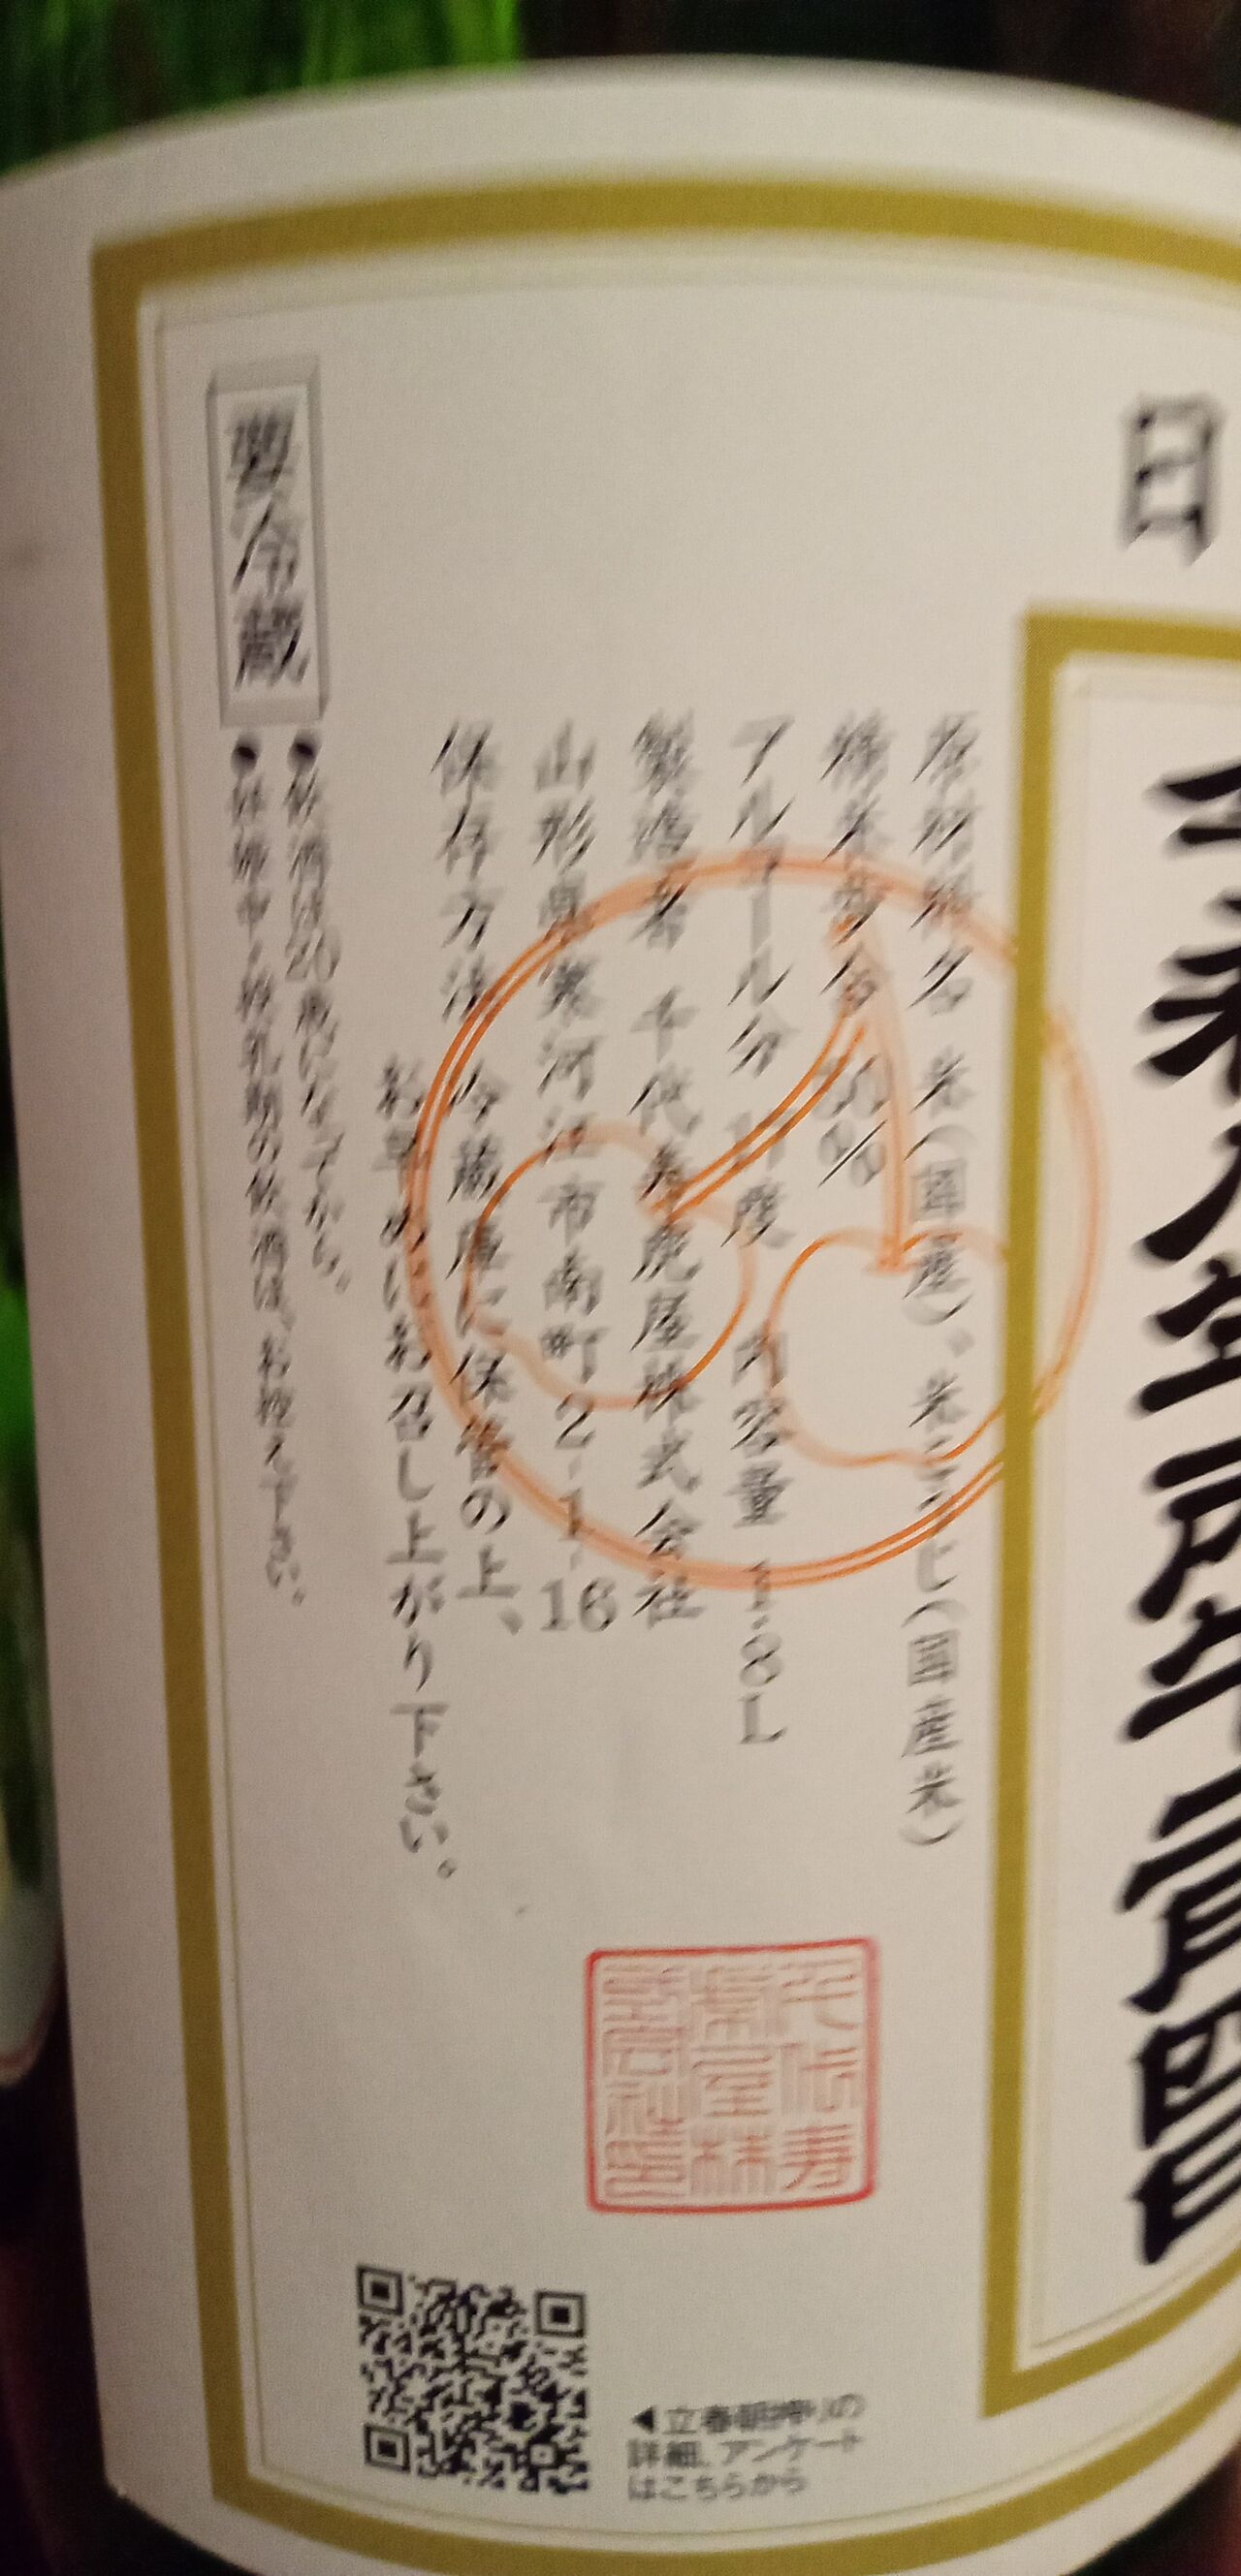 日
原材料名 米(国産)、米こうじ(国産米)
精米歩合
アルコール分 内容量 1.8L
製造者 千代寿虎屋株式会社
山形県寒河江市南町2-1-16
保存方法 冷蔵庫に保管の上、
お早めにお召し上がり下さい。
要冷蔵
●飲酒は20歳になってから。
●妊娠中・授乳期の飲酒は、お控え下さい。
千代寿
虎屋株
式会社
◀立春朝搾りの
詳細、アンケート
はこちらから